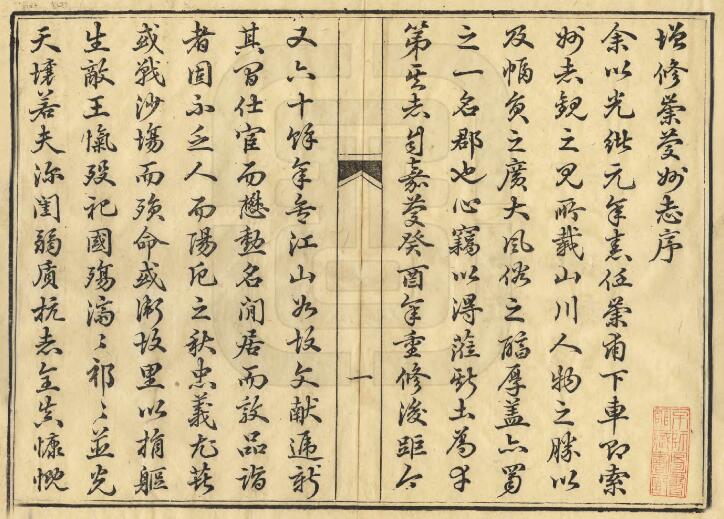 增修崇慶州志序
余以光緒元年任崇甫下車即索
州志觀之見所載山川人物之勝以
及幅員之廣大風俗之醇厚蓋亦蜀
之一名郡也心竊以得蒞斯土為幸
第其志自嘉慶癸酉年重修後距今
一
又六十餘年矣江山如故文獻遞新
其間仕宦而懋勳名閒居而敦品詣
者固不乏人而陽厄之秋忠義尤
或戰沙場而殞命或衛故里以捐軀
生敵王愾歿祀國殤濟〻祁〻並光
天壤若夫深閨弱質抗志全貞慷慨